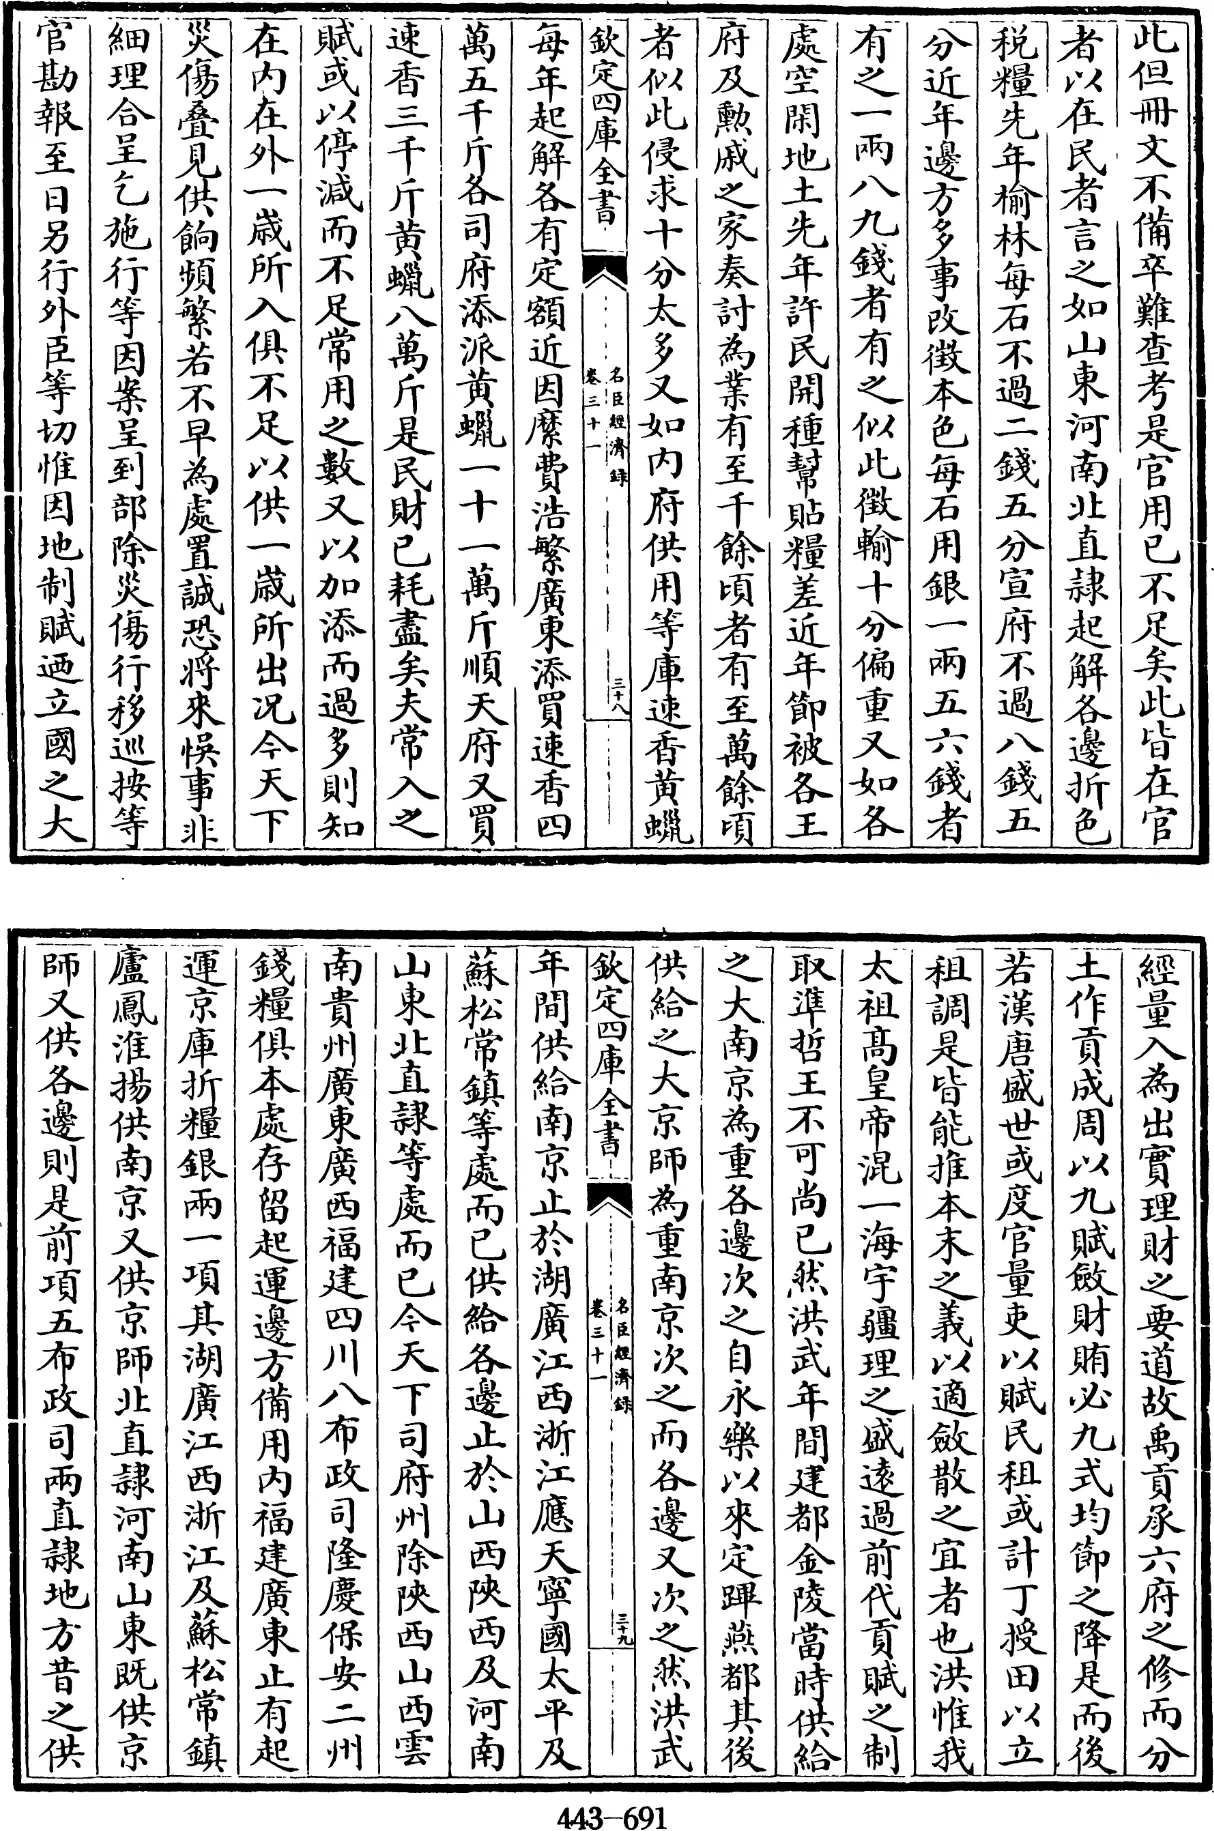 此但冊文不備卒難查考是官用已不足矣此皆在官
者以在民者言之如山東河南北直隸起解各邊折色
稅糧先年榆林每石不過二錢五分宣府不過八錢五
分近年邊方多事改徵本色每石用銀一兩五六錢者
有之一兩八九錢者有之似此徵輸十分偏重又如各
處空閑地土先年許民開種幫貼糧差近年節被各王
府及勲戚之家奏討為業有至千餘頃者有至萬餘頃
者似此侵求十分太多又如内府供用等庫速香黄蠟
欽定四庫全書
名臣經濟録
卷三十一
三十八
每年起解各有定額近因縻費浩繁廣東添買速香四
萬五千斤各司府添派黄蠟一十一萬斤順天府又買
速香三千斤黄蠟八萬斤是民財已耗盡矣夫常入之
賦或以停減而不足常用之數又以加添而過多則知
在内在外一歲所入俱不足以供一歲所出况今天下
災傷叠見供餉頻繁若不早為處置誠恐將來悞事非
細理合呈乞施行等因案呈到部除災傷行移巡按等
官勘報至日另行外臣等切惟因地制賦迺立國之大
經量入為出實理財之要道故禹貢承六府之修而分
土作貢成周以九賦斂財賄必九式均節之降是而後
若漢唐盛世或度官量吏以賦民租或計丁授田以立
租調是皆能推本末之義以適斂散之宜者也洪惟我
太祖髙皇帝混一海宇疆理之盛遠過前代貢賦之制
取準哲王不可尚已然洪武年間建都金陵當時供給
之大南京為重各邊次之自永樂以來定蹕燕都其後
供給之大京師為重南京次之而各邊又次之然洪武
欽定四庫全書
名臣經濟録
卷三十一
三十九
年間供給南京止於湖廣江西浙江應天寧國太平及
蘇松常鎮等處而已供給各邊止於山西陜西及河南
山東北直隸等處而已今天下司府州除陜西山西雲
南貴州廣東廣西福建四川八布政司隆慶保安二州
錢糧俱本處存留起運邊方備用内福建廣東止有起
運京庫折糧銀兩一項其湖廣江西浙江及蘇松常鎮
廬鳳淮揚供南京又供京師北直隸河南山東既供京
師又供各邊則是前項五布政司兩直隸地方昔之供
443-691